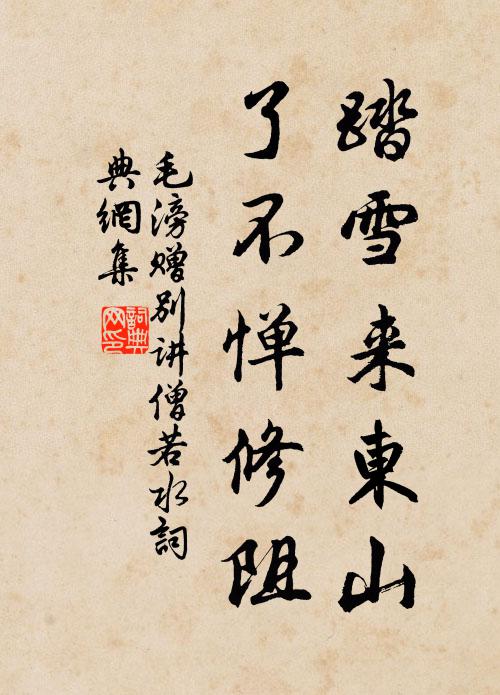 踏雪来東山
了不惮修阻
毛滂赠别讲僧若水詞
典網集
詞典网印